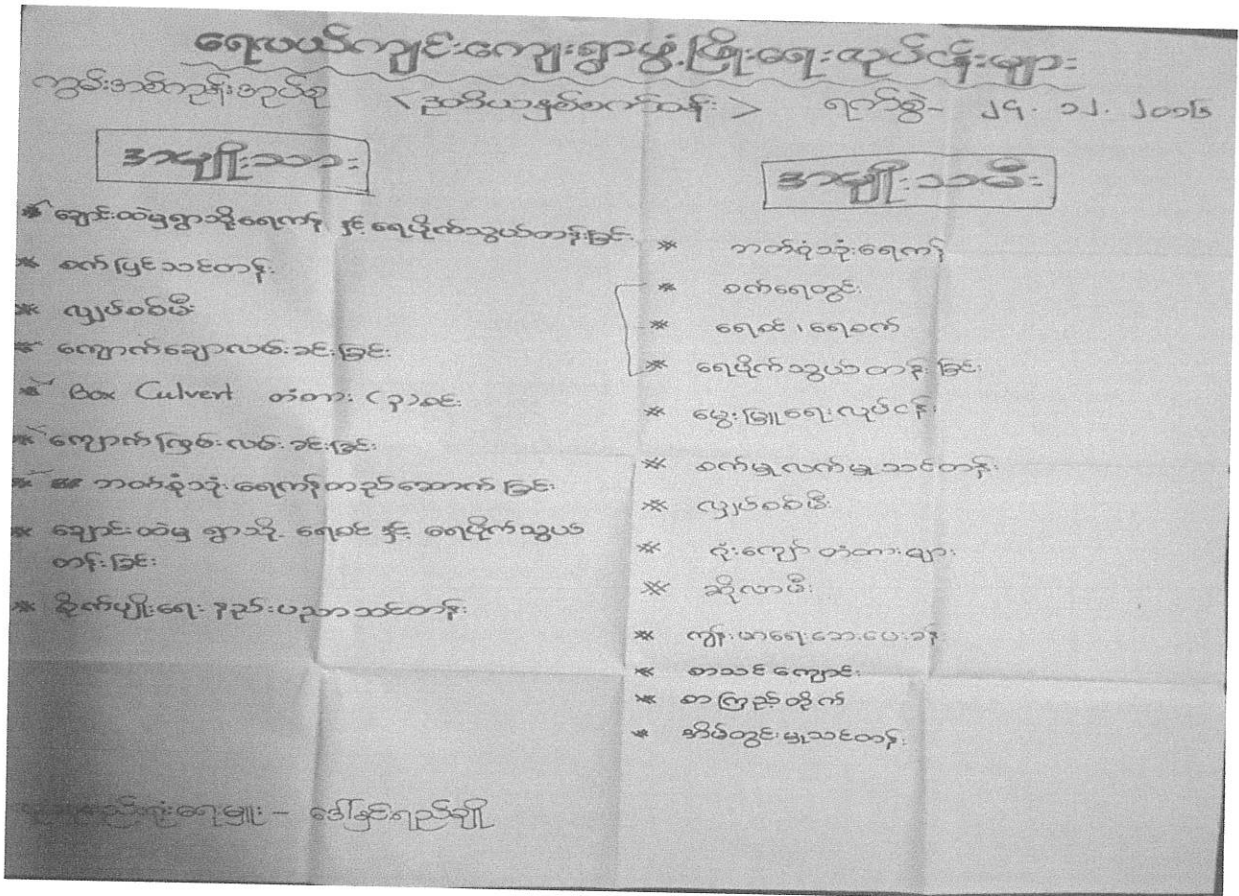 ရေလယ်ကျင်းကျေးရွာဖွံ့ဖြိုးရေးလုပ်ငန်းများ
ကွမ်းခြံကုန်းအုပ်စု < ဒုတိယနှစ်စက်ဝန်း > ရက်စွဲ- ၂၄. ၁၂. ၂၀၁၆
အမျိုးသား
* ချောင်းထဲမှရွာသို့ရေကန် နှင့် ရေပိုက်သွယ်တန်းခြင်း
* စက်ပြင်သင်တန်း
* လျှပ်စစ်မီး
* ကျောက်ချောလမ်းခင်းခြင်း
* Box Culvert တံတား (၃)စင်း
* ကျောက်ကြမ်းလမ်းခင်းခြင်း
* ဘက်စုံသုံးရေကန်တည်ဆောက်ခြင်း
* ချောင်းထဲမှ ရွာသို့ ရေစင် နှင့် ရေပိုက်သွယ်
တန်းခြင်း
* စိုက်ပျိုးရေးနည်းပညာသင်တန်း
အမျိုးသမီး
* ဘက်စုံသုံးရေကန်
* စက်ရေတွင်း
* ရေစင်၊ ရေစက်
* ရေပိုက်သွယ်တန်းခြင်း
* မွေးမြူရေးလုပ်ငန်း
* စက်မှုလက်မှုသင်တန်း
* လျှပ်စစ်မီး
* ဂုံးကျော်တံတားများ
* ဆိုလာမီး
* ကျန်းမာရေးဆေးပေးခန်း
* စာသင်ကျောင်း
* စာကြည့်တိုက်
* အိမ်တွင်းမှုသင်တန်း
စည်းရုံးရေးမှူး - ဒေါ်ခင်ရည်ချို